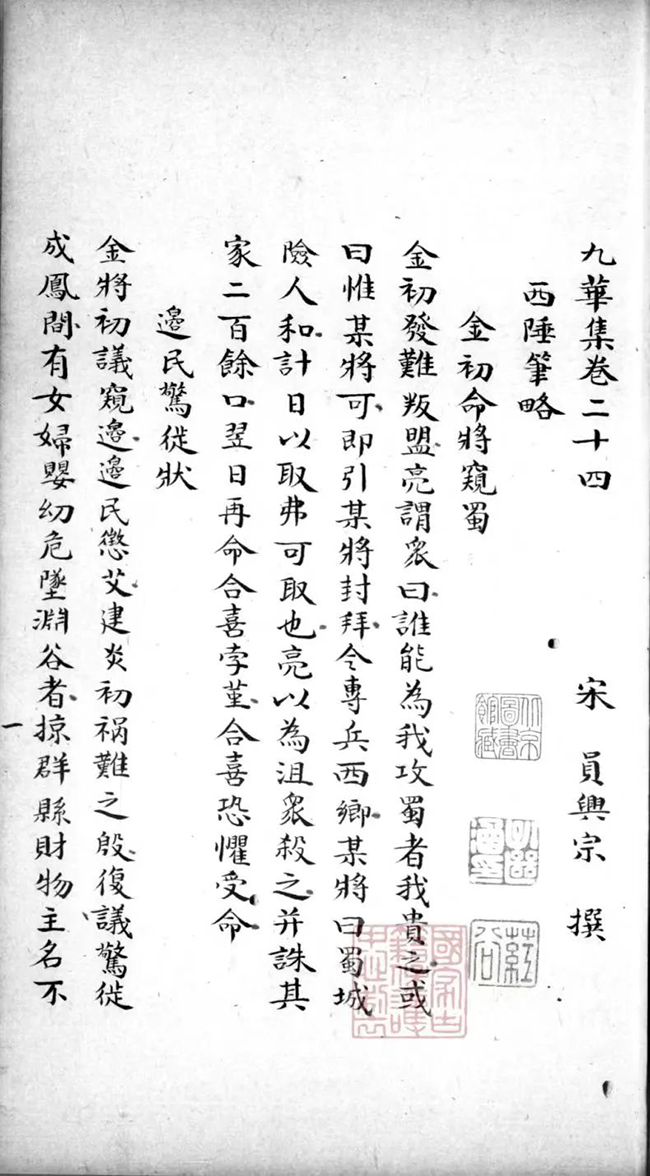 九華集卷二十四
宋 員興宗 撰
西陲筆略
金初命將窺蜀
金初發難叛盟亮謂衆曰誰能為我攻蜀者我貴之或
曰惟某將可即引某將封拜令專兵西鄉某將曰蜀城
險人和計日以取弗可取也亮以為沮衆殺之并誅其
家二百餘口翌日再命合喜孛堇合喜恐懼受命
邊民驚徙狀
金將初議窺邊邊民懲艾建炎初禍難之殷復議驚徙
成鳳間有女婦嬰幼危墜淵谷者掠群縣財物主名不
一